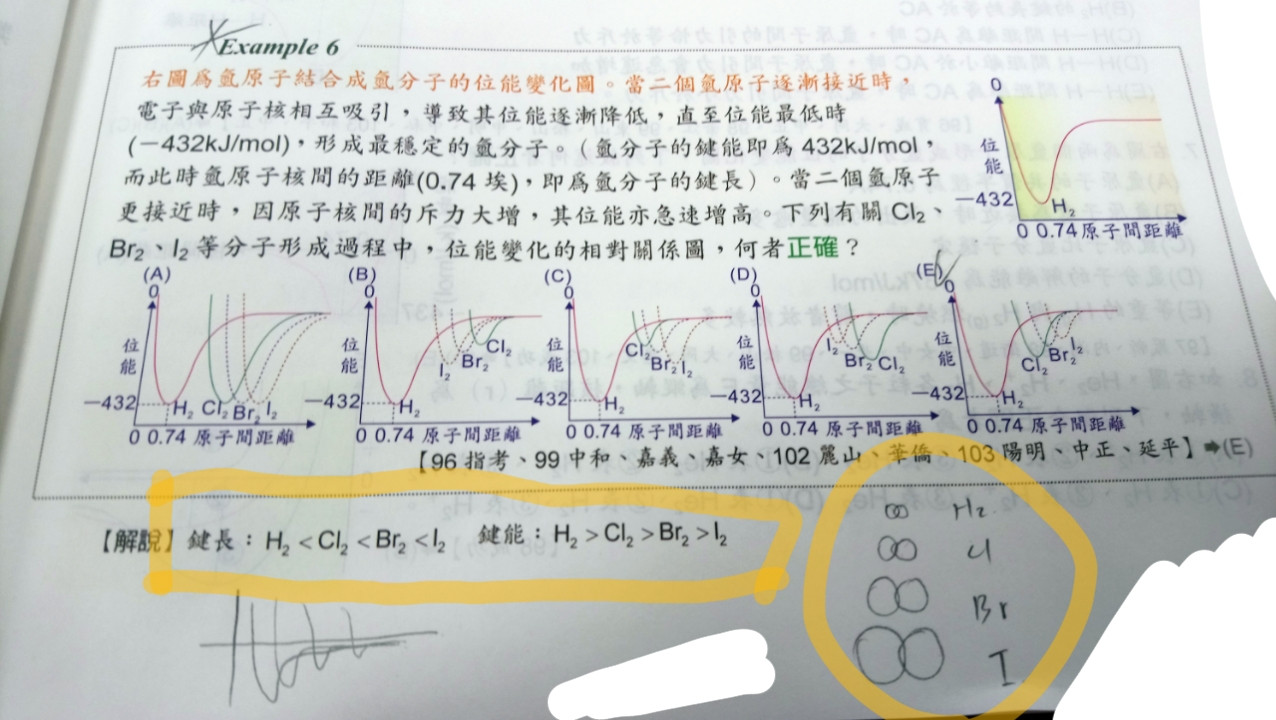 Example 6
右圖爲氫原子結合成氫分子的位能變化圖。當二個氫原子逐漸接近時，
電子與原子核相互吸引，導致其位能逐漸降低，直至位能最低時
(－432kJ/mol)，形成最穩定的氫分子。（氫分子的鍵能即爲 432kJ/mol，
而此時氫原子核間的距離(0.74 埃)，即爲氫分子的鍵長）。當二個氫原子
更接近時，因原子核間的斥力大增，其位能亦急速增高。下列有關 Cl₂、
Br₂、I₂ 等分子形成過程中，位能變化的相對關係圖，何者正確？
0
位能
－432
H₂
0 0.74 原子間距離
(A)
0
位能
－432
H₂ Cl₂ Br₂ I₂
0 0.74 原子間距離
(B)
0
位能
－432
H₂
I₂ Br₂ Cl₂
0 0.74 原子間距離
(C)
0
位能
－432
H₂
Cl₂ Br₂ I₂
0 0.74 原子間距離
(D)
0
位能
－432
H₂
I₂ Br₂ Cl₂
0 0.74 原子間距離
(E)
0
位能
－432
H₂
Cl₂ Br₂ I₂
0 0.74 原子間距離
【96 指考、99 中和、嘉義、嘉女、102 麗山、華僑、103 陽明、中正、延平】➡(E)
【解說】鍵長：H₂＜Cl₂＜Br₂＜I₂　鍵能：H₂＞Cl₂＞Br₂＞I₂
H₂
Cl
Br
I